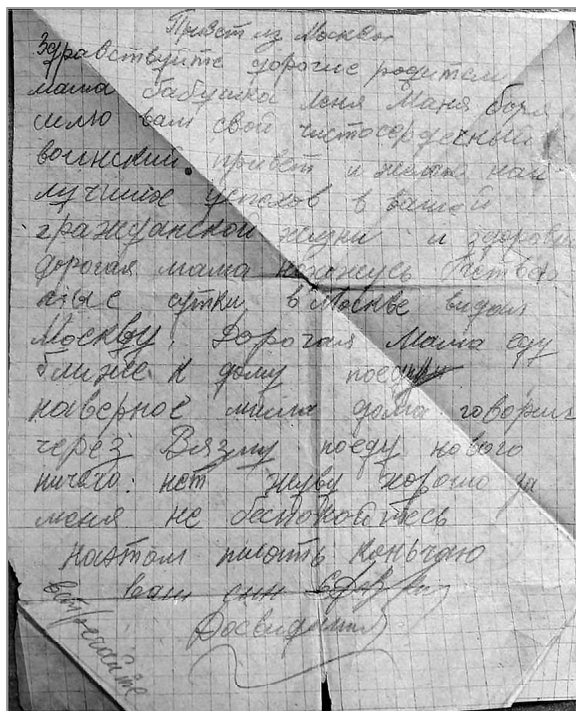 Привет из Москвы
Здравствуйте дорогие родители
мама бабушка Леня Маня Боря
шлю вам свой чистосердечный
воинский привет и желаю най
лучших успехов в вашей
гражданской жизни и здоровия
дорогая мама нахожусь
сутки в Москве видел
Москву. Дорогая Мама еду
ближе к дому поеду
наверное мима дома говорят
через Вязму поеду нового
ничего нет живу хорошо за
меня не беспокойтесь
наэтом писать коньчаю
ваш сын
Досвидания
встречайте